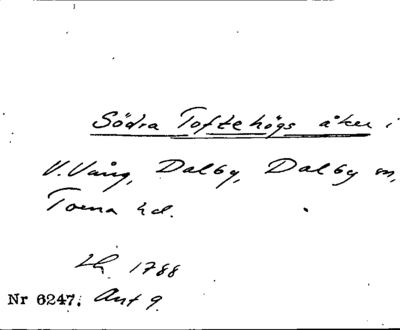 Södra Toftehögs åker i
V.Vång, Dalby, Dalby sn,
Torna hd.
Lh. 1788
Nr 6247. Akt 9.